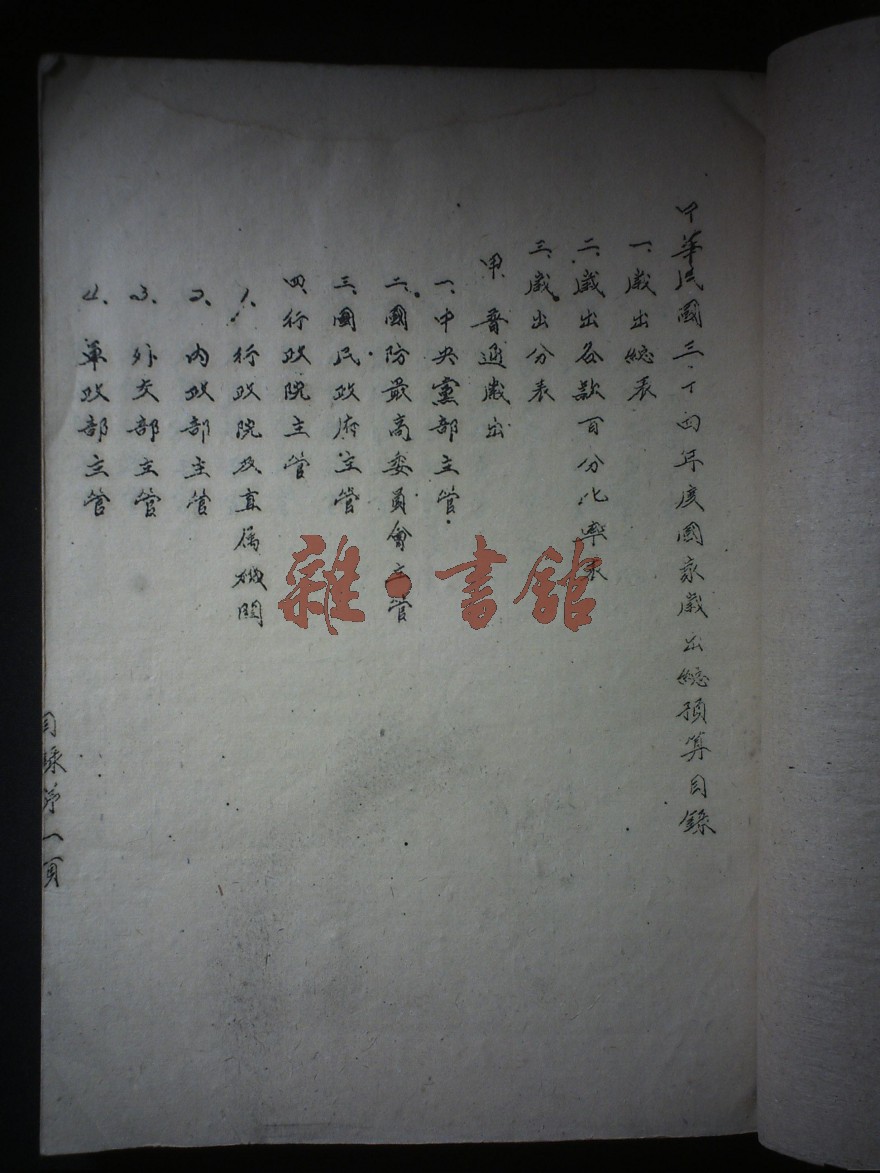 中華民國三十四年度國家歲出總預算目錄
一、歲出總表
二、歲出各款百分比率表
三、歲出分表
甲、普通歲出
一、中央黨部主管
二、國防最高委員會主管
三、國民政府主管
四、行政院主管
1、行政院及直属機関
2、內政部主管
3、外交部主管
4、軍政部主管
目錄第一頁
雜·書館